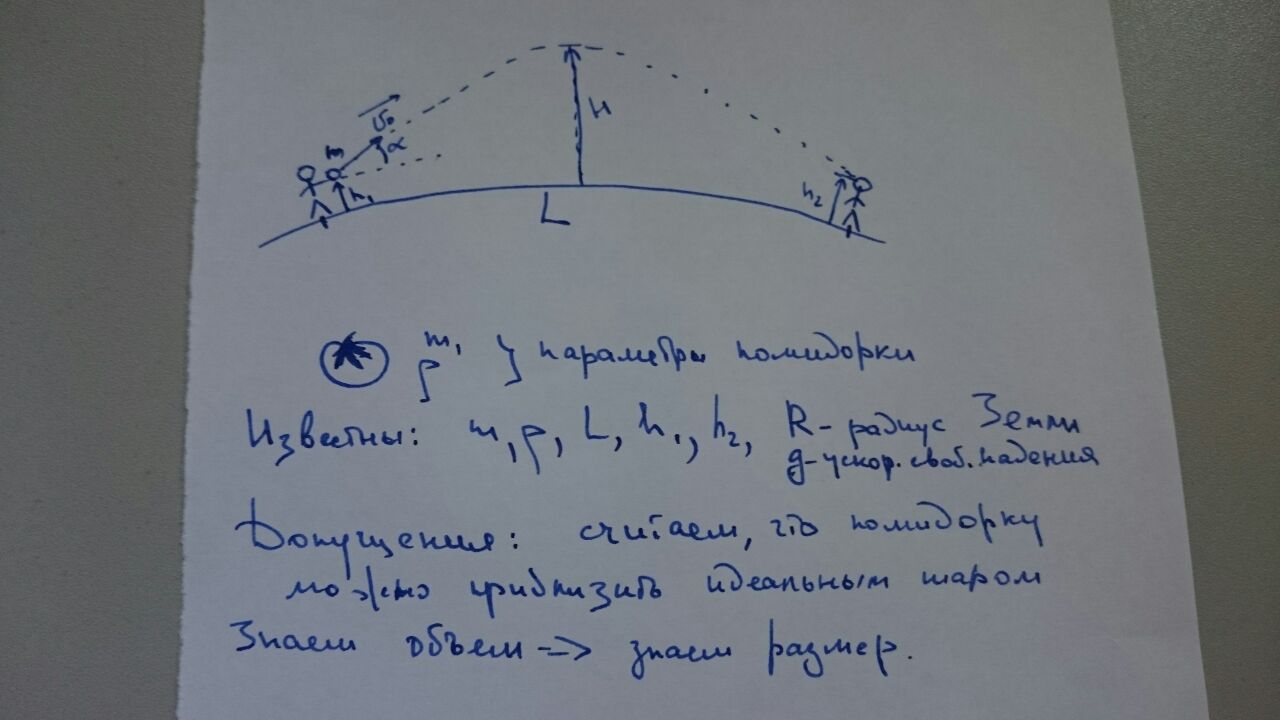 H
v₀
m
α
h₁
h₂
L
m,
ρ } параметры помидорки
Известны: m, ρ, L, h₁, h₂, R - радиус Земли
g - ускор. своб. падения
Допущения: считаем, что помидорку
можно приблизить идеальным шаром
Знаем объем => знаем размер.